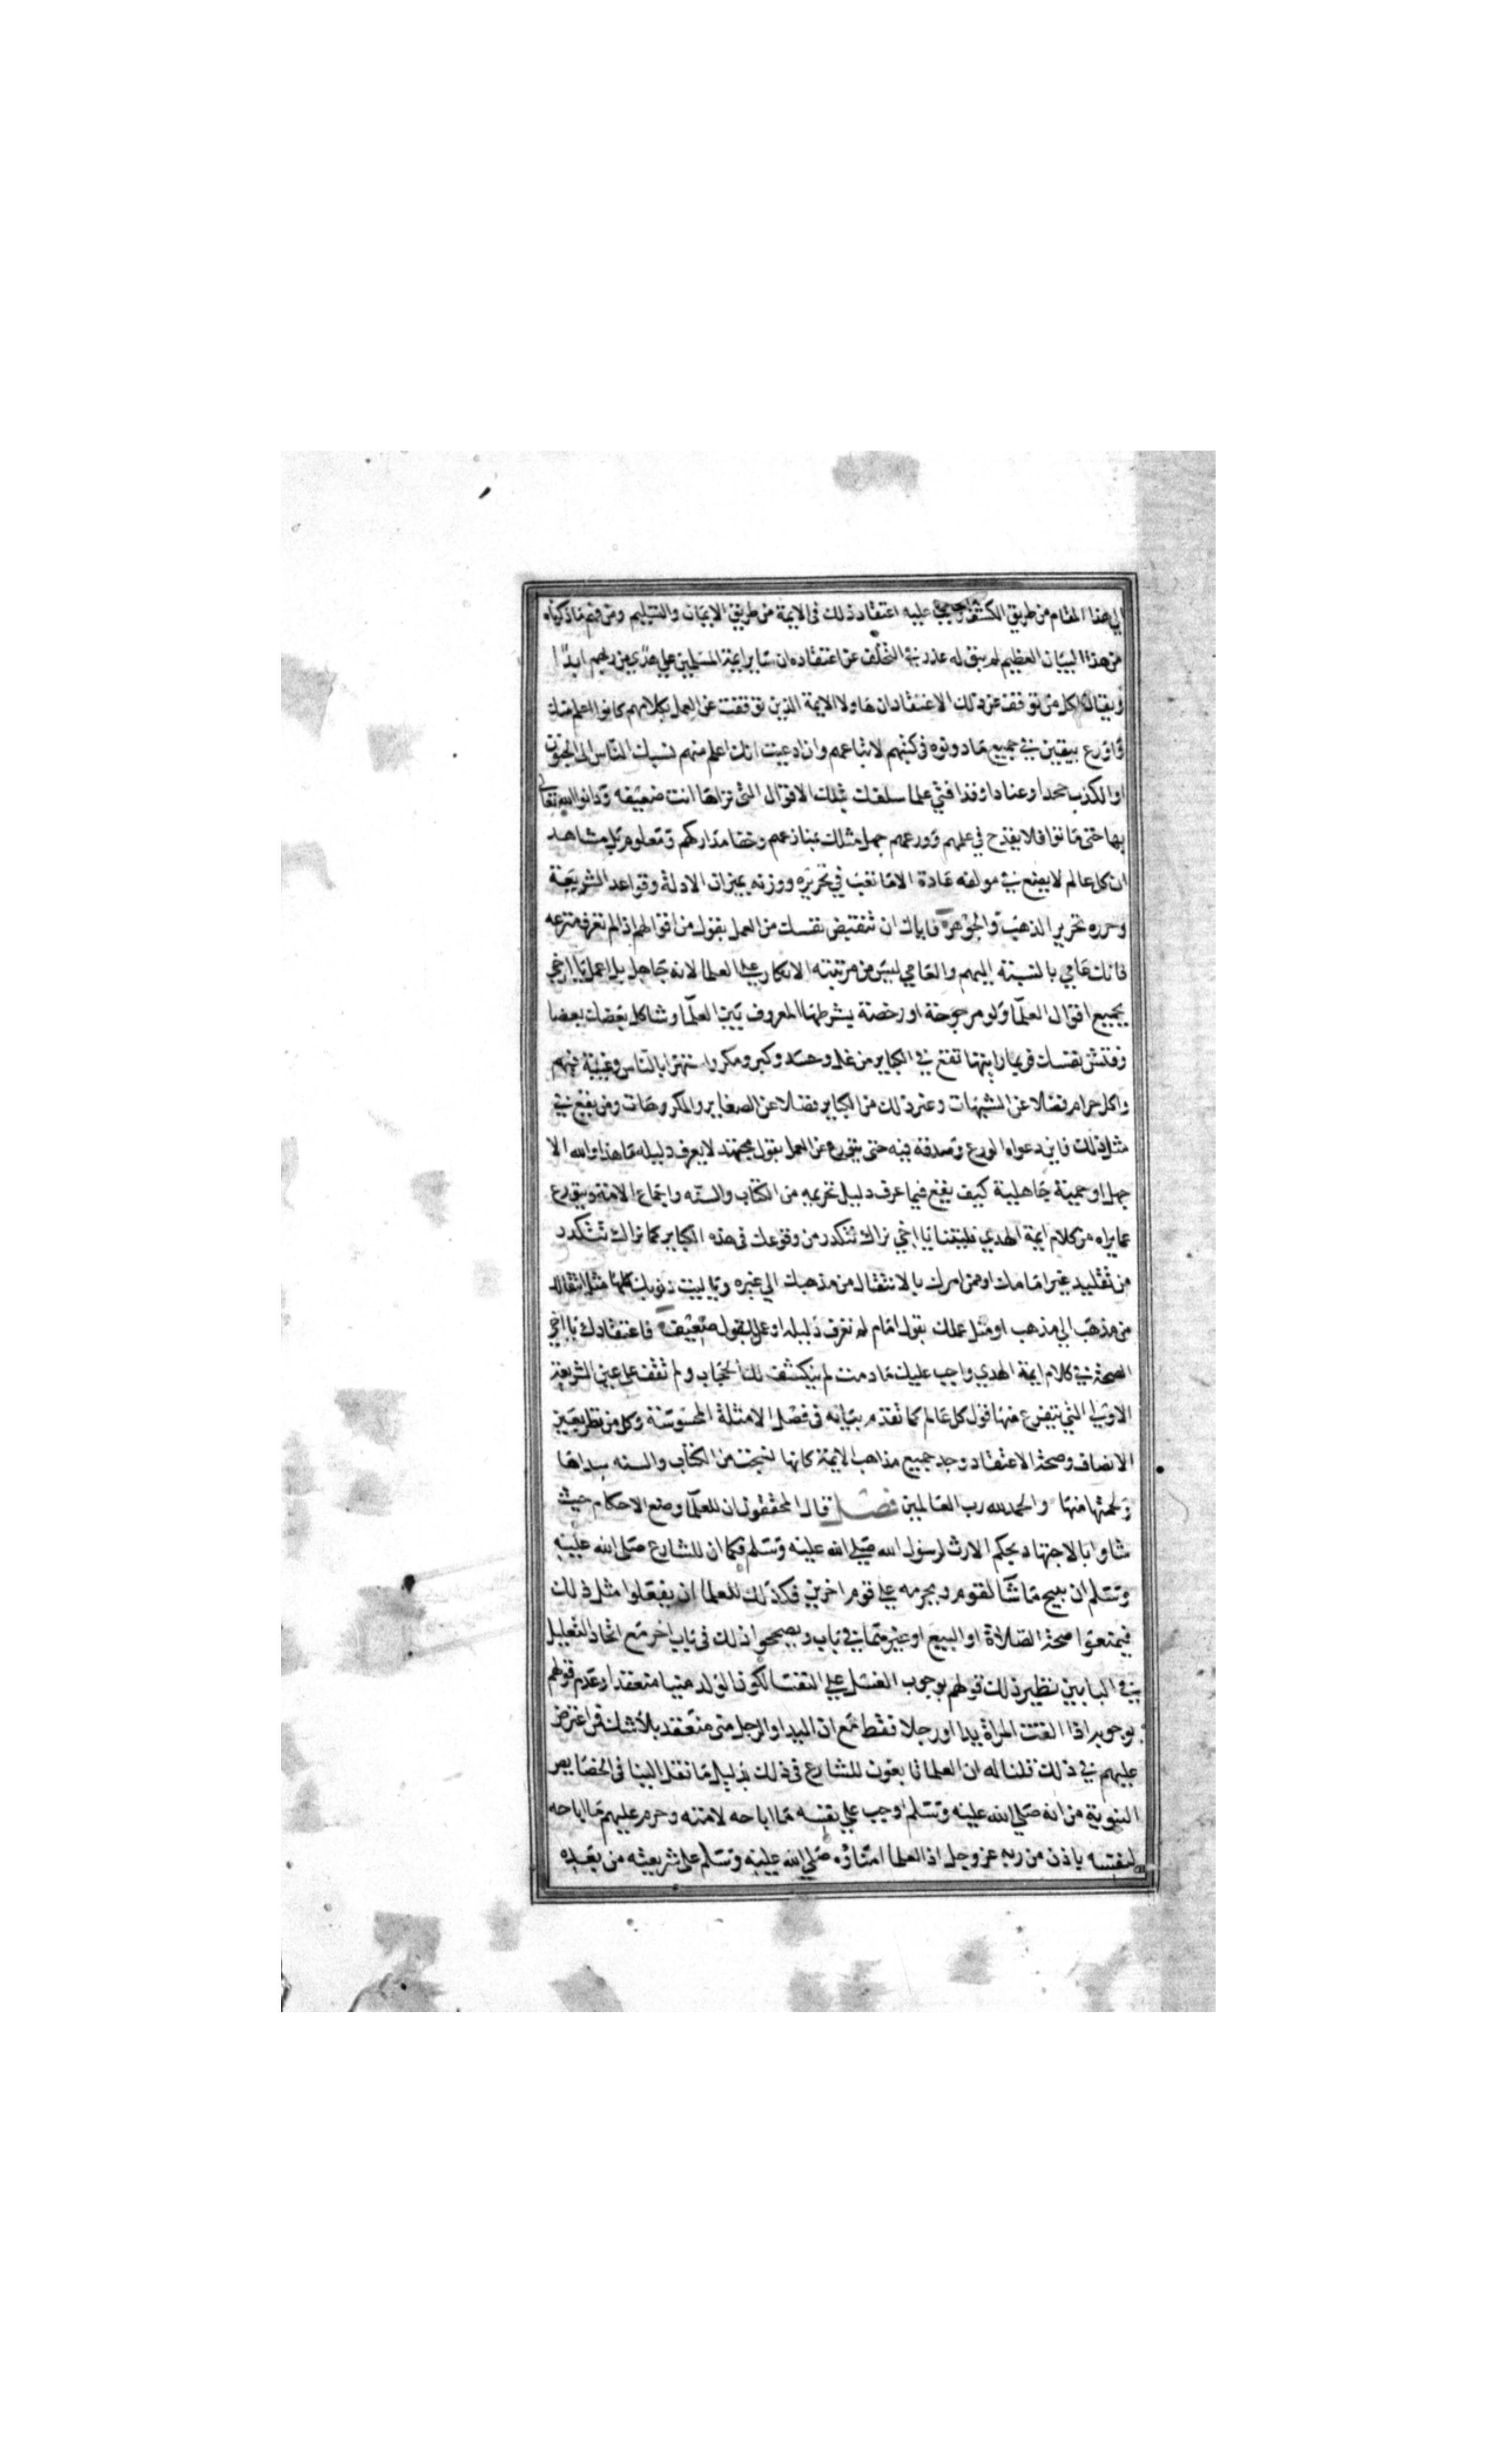 الي هذا المقام من طريق الكشف وجب عليه اعتقاد ذلك في الايمة من طريق الايمان والتسليم ومن فهم ما ذكرناه
من هذا البيان العظيم لم يبق له عذر في التخلف عن اعتقاده ان ساير ايمة المسلمين علي هدي من ربهم ابدا
ويقال لكل من توقف عن ذلك الاعتقاد ان هاولا الايمة الذين توقفت عن العمل بكلامهم كانوا اعلم منك
واورع بيقين في جميع ما دونوه في كتبهم لاتباعهم وان ادعيت انك اعلم منهم نسبك الناس الى الجنون
او الكذب جحدا وعنادا وقد افتي علما سلفك بتلك الاقوال التي تراها انت ضعيفه ودانوا الله تعالى
بها حتى ماتوا فلا يقدح في علمهم وورعهم جهل مثلك بمنازعهم وخفا مداركهم ومعلوم بل مشاهد
ان كل عالم لا يضع في مولفه عادة الا ما تعب في تحريره ووزنه بميزان الادلة وقواعد الشريعة
وحرره تحرير الذهب والجوهر فاياك ان تنقبض نفسك من العمل بقول من اقوالهم اذا لم تعرف منزعه
فانك عامي بالنسبة اليهم والعامي ليس من مرتبته الانكار علي العلما لانه جاهل بل اعمل يا اخي
بجميع اقوال العلما ولو مرجوحة او رخصة بشرطها المعروف بين العلما وشاكل بعضك بعضا
وفتش نفسك فربما رايتها تقع في الكباير من غل وحسد وكبر ومكر واستهزا بالناس وغيبة فيهم
واكل حرام فضلا عن الشبهات وغير ذلك من الكباير فضلا عن الصغاير والمكروهات ومن يقع في
مثل ذلك فاين دعواه الورع وصدقه فيه حتى يتورع عن العمل بقول مجتهد لا يعرف دليله ما هذا والله الا
جهل او حمية جاهلية كيف يقع فيما عرف دليل تحريمه من الكتاب والسنه واجماع الامة ويتورع
عما يراه من كلام ايمة الهدي فليتنا يا اخي نراك تتكدر من وقوعك في هذه الكباير كما نراك تتكدر
من تقليد غير امامك او ممن امرك بالانتقال من مذهبك الي غيره ويا ليت ذنوبك كلها مثل انتقالك
من مذهب الي مذهب او مثل عملك بقول امام لم تعرف دليله او عمل بقول ضعيف فاعتقادك يا اخي
الصحة في كلام ايمة الهدي واجب عليك ما دمت لم ينكشف لك الحجاب ولم تقف على عين الشريعة
الاولي التي يتفرع منها قول كل عالم كما تقدم بيانه في فصل الامثلة المحسوسة وكل من نظر بعين
الانصاف وصحة الاعتقاد وجد جميع مذاهب الايمة كانها نسجت من الكتاب والسنه سداها
ولحمتها منها والحمد لله رب العالمين فصل قال المحققون ان للعلما وضع الاحكام حيث
شاوا بالاجتهاد بحكم الارث لرسول الله صلي الله عليه وسلم فكما ان للشارع صلى الله عليه
وسلم ان يبيح ما شا لقوم ويحرمه علي قوم اخرين فكذلك للعلما ان يفعلوا مثل ذلك
فيمنعوا صحة الصلاة او البيع او غيرهما في باب ويصححوا ذلك في باب اخر مع اتحاد التعليل
في البابين نظير ذلك قولهم بوجوب الغسل علي النفسا لكون الولد منيا منعقدا وعدم قولهم
بوجوبه اذا القت المراة يدا او رجلا فقط مع ان اليد او الرجل مني منعقد بلا شك فمن اعترض
عليهم في ذلك قلنا له ان العلما تابعون للشارع في ذلك بدليل ما نقل الينا في الخصايص
النبوية من انه صلي الله عليه وسلم اوجب علي نفسه ما اباحه لامته وحرم عليهم ما اباحه
لنفسه باذن من ربه عز وجل اذ العلما امناؤه صلي الله عليه وسلم على شريعته من بعده